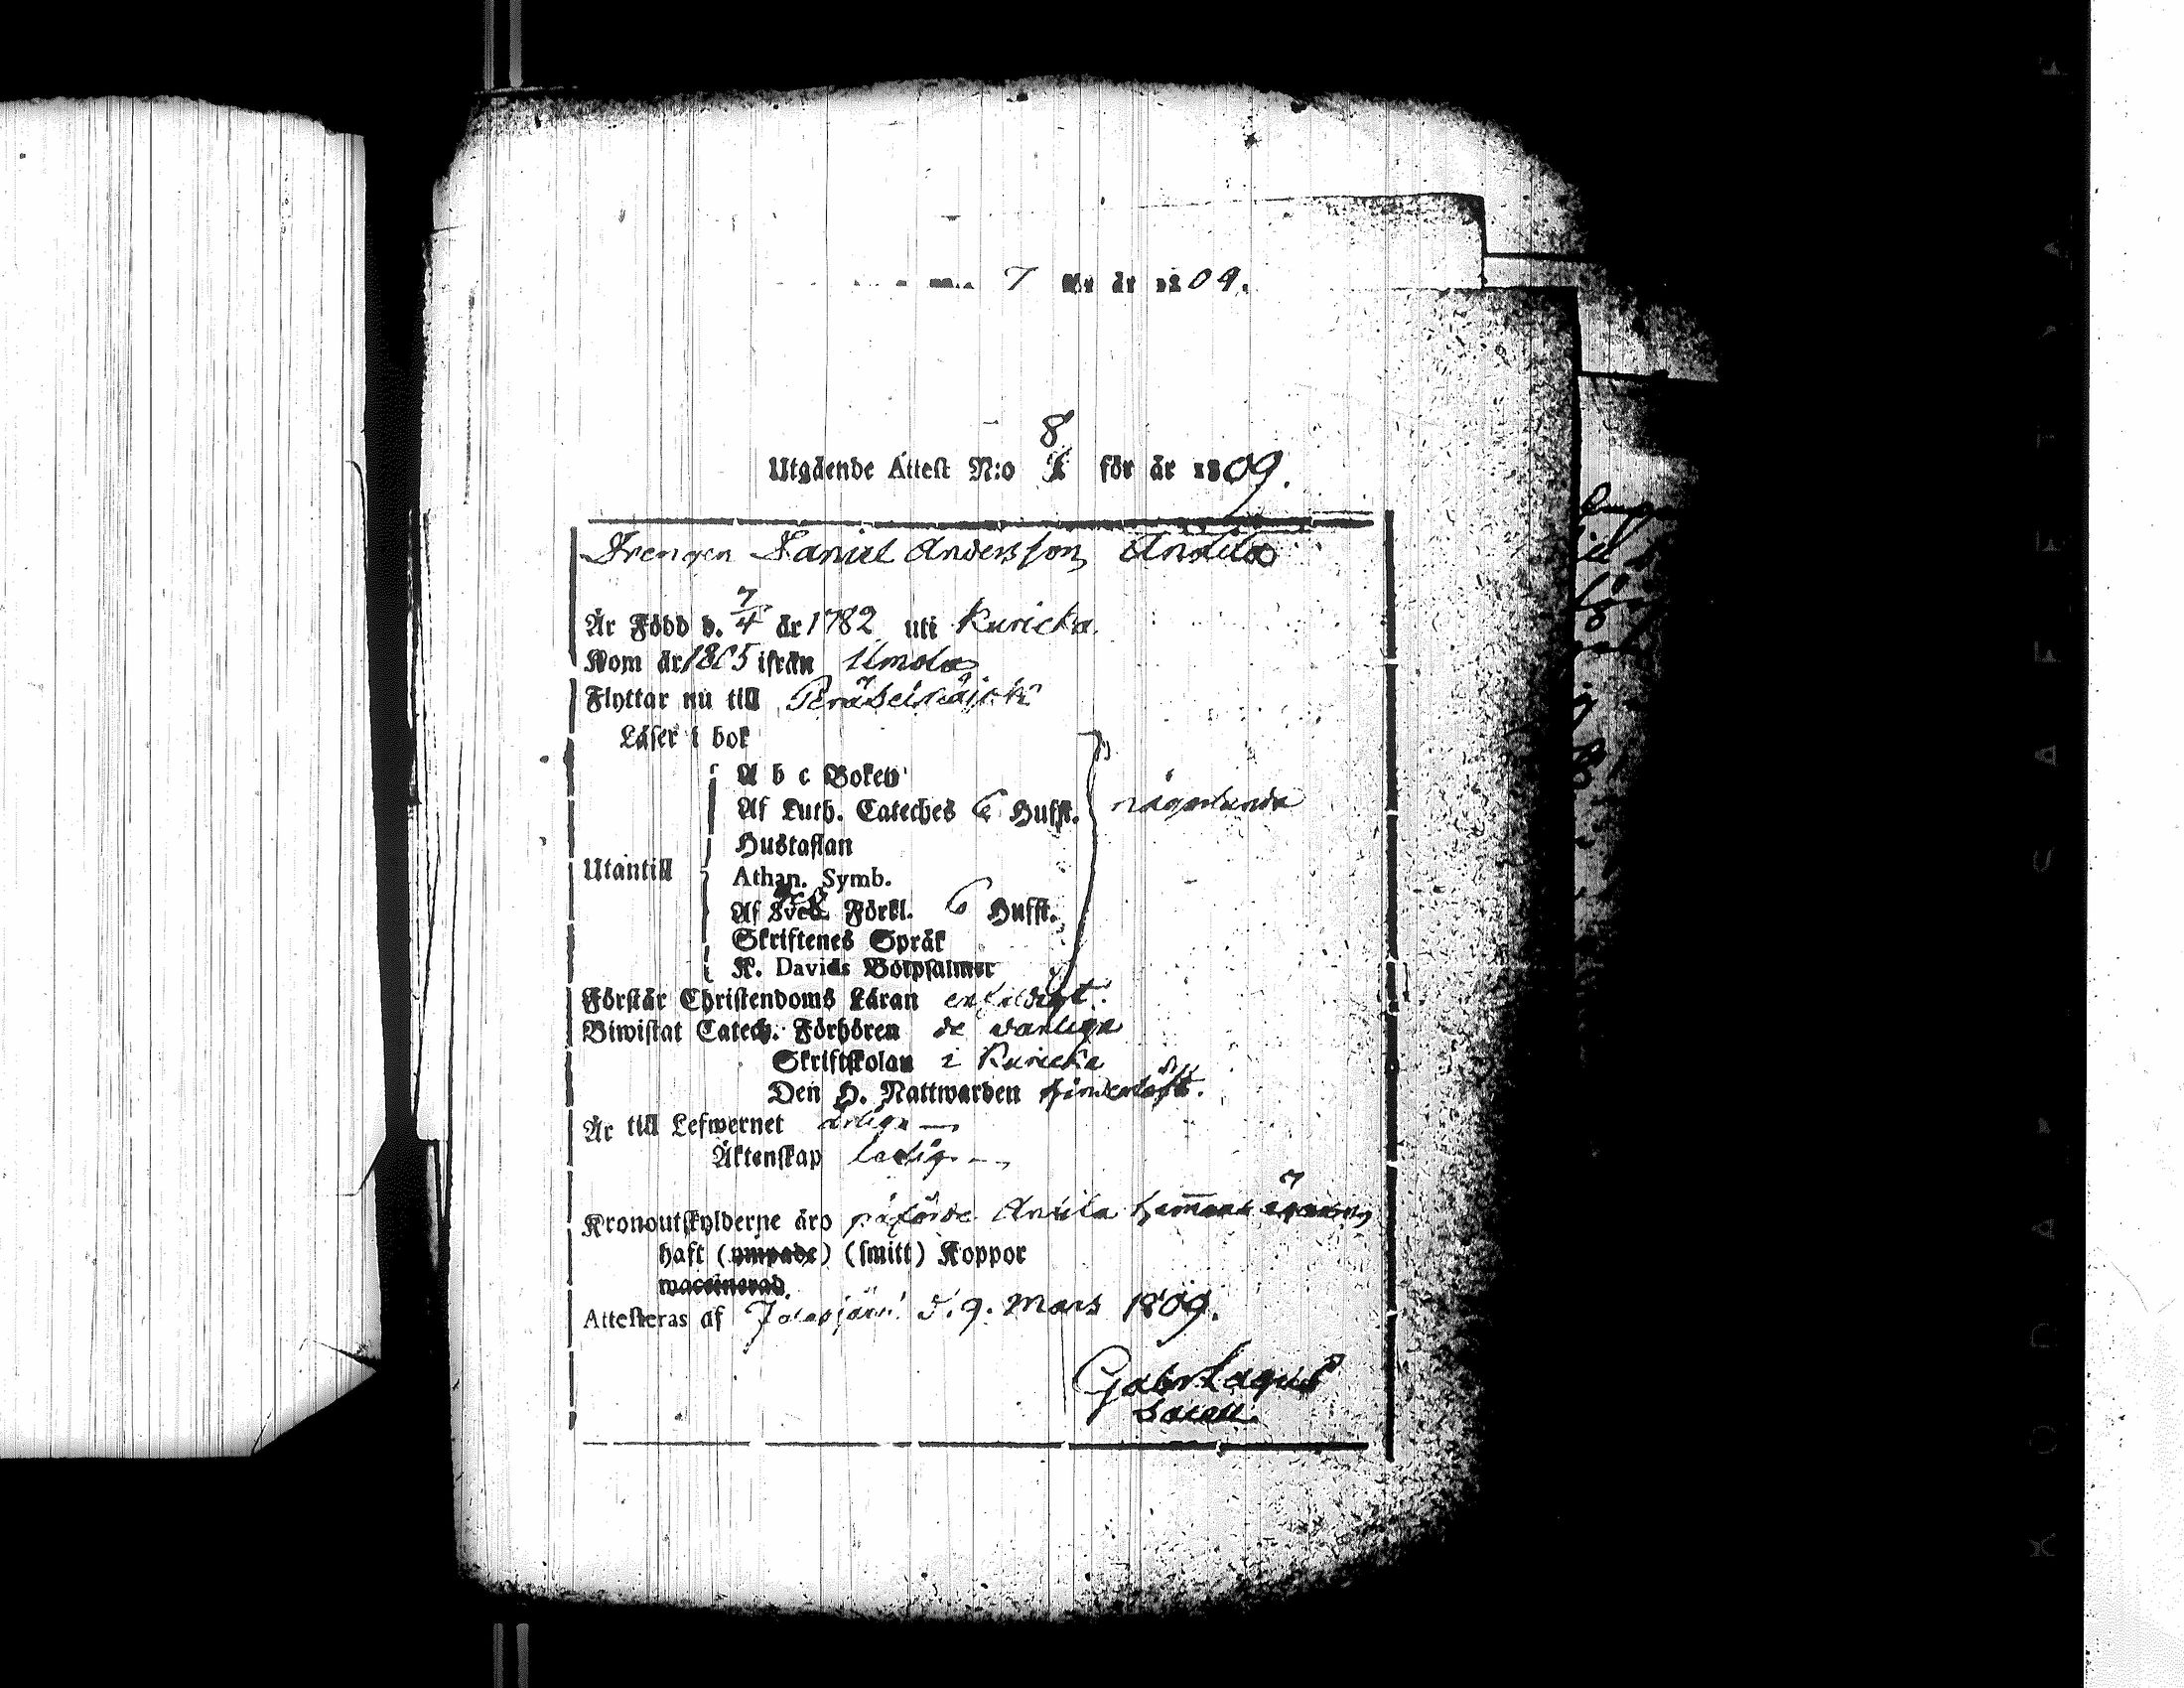 7 för år 1809.
8
Utgående Attest N:o för år 1809.
Drengen Daniel Andersson Anttila
Är Född d. 7/4 år 1782 uti Kuricka
Kom år 1805 ifrån Ilmola
Flyttar nu till Peräseinäjoki
Läser i bok
A b c Boken
Af Luth. Cateches 6 Hufst. någorlunda
Hustaflan
Utantill
Athan. Symb.
Af Sveb. Förkl. 6 Hufst.
Skriftenes Språk
K. Davids Botpsalmer
Förstår Christendoms Läran enfaldigt.
Biwistat Catech. Förhören de vanliga
Skriftskolan i Kuricka
Den H. Nattwarden hinderlöst.
Är till Lefwernet ärlig
Äktenskap ledig
Kronoutskylderne äro påförde Anttila hemmans
haft (ympade) (smitt) Koppor
waccinerad.
Attesteras af Jalasjärvi d. 9. Mars 1809.
Gabr Lagus
Sacell.